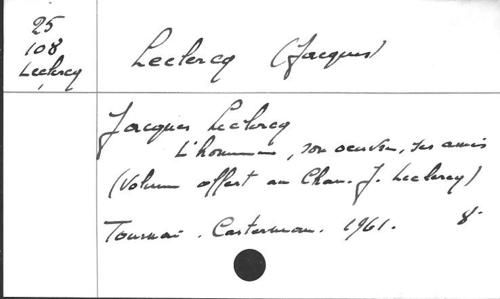 25
108
Leclercq
Leclercq (Jacques)
Jacques Leclercq
L'homme, son oeuvre, ses amis
(Volume offert au Chan. J. Leclercq)
Tournai. Casterman. 1961. 8°